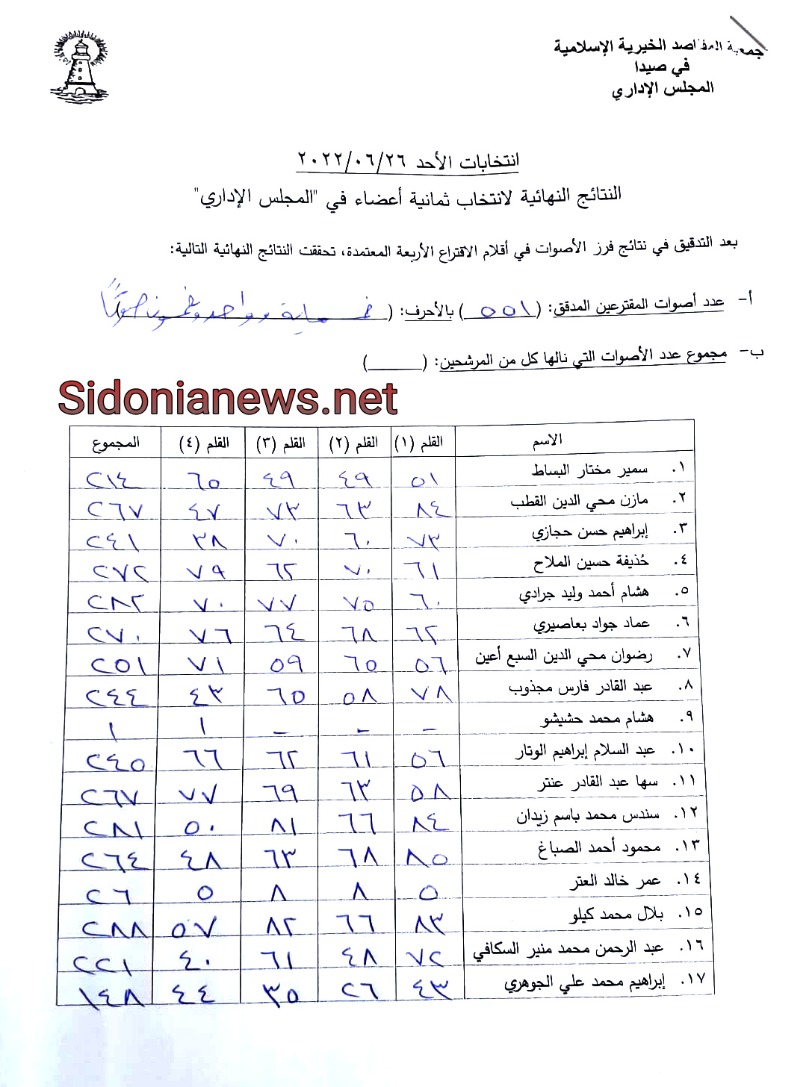 جمعية المقاصد الخيرية الإسلامية
في صيدا
المجلس الإداري
انتخابات الأحد ٢٠٢٢/٠٦/٢٦
النتائج النهائية لانتخاب ثمانية أعضاء في "المجلس الإداري"
بعد التدقيق في نتائج فرز الأصوات في أقلام الاقتراع الأربعة المعتمدة، تحققت النتائج النهائية التالية:
أ- عدد أصوات المقترعين المدقق: (٥٥١) بالأحرف: (خمسماية وواحد وخمسون صوتاً
ب- مجموع عدد الأصوات التي نالها كل من المرشحين: (______)
Sidonianews.net
الاسم القلم (١) القلم (٢) القلم (٣) القلم (٤) المجموع
١. سمير مختار البساط ٥١ ٤٩ ٤٩ ٦٥ ٢١٤
٢. مازن محي الدين القطب ٨٤ ٦٣ ٧٣ ٤٧ ٢٦٧
٣. إبراهيم حسن حجازي ٧٣ ٦٠ ٧٠ ٣٨ ٢٤١
٤. حُذيفة حسين الملاح ٦١ ٧٠ ٦٢ ٧٩ ٢٧٢
٥. هشام أحمد وليد جرادي ٦٠ ٧٥ ٧٧ ٧٠ ٢٨٢
٦. عماد جواد بعاصيري ٦٢ ٦٨ ٦٤ ٧٦ ٢٧٠
٧. رضوان محي الدين السبع أعين ٥٦ ٦٥ ٥٩ ٧١ ٢٥١
٨. عبد القادر فارس مجذوب ٧٨ ٥٨ ٦٥ ٤٣ ٢٤٤
٩. هشام محمد حشيشو - - - ١ ١
١٠. عبد السلام إبراهيم الوتار ٥٦ ٦١ ٦٢ ٦٦ ٢٤٥
١١. سها عبد القادر عنتر ٥٨ ٦٣ ٦٩ ٧٧ ٢٦٧
١٢. سندس محمد باسم زيدان ٨٤ ٦٦ ٨١ ٥٠ ٢٨١
١٣. محمود أحمد الصباغ ٨٥ ٦٨ ٦٣ ٤٨ ٢٦٤
١٤. عمر خالد العتر ٥ ٨ ٨ ٥ ٢٦
١٥. بلال محمد كيلو ٨٣ ٦٦ ٨٢ ٥٧ ٢٨٨
١٦. عبد الرحمن محمد منير السكافي ٧٢ ٤٨ ٦١ ٤٠ ٢٢١
١٧. إبراهيم محمد علي الجوهري ٤٣ ٢٦ ٣٥ ٤٤ ١٤٨